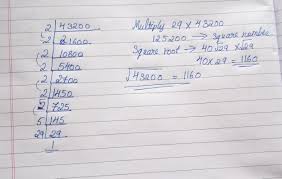 2 | 43200
2 | 21600
2 | 10800
2 | 5400
2 | 2700
2 | 1450
2 | 725
5 | 145
29 | 29
1
Multiply 29 x 43200
125200 → Square number
Square root → 40 x 29
40 x 29 = 1160
√43200 = 1160